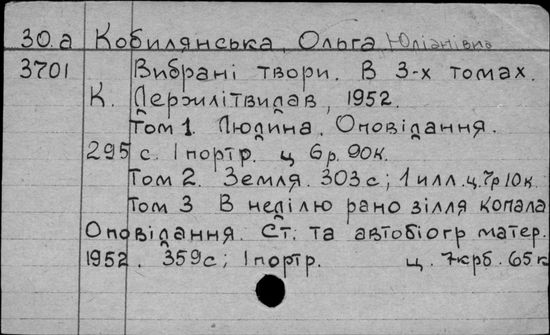 30.а Кобилянська, Ольга Юліанівна
3701 Вибрані твори. В 3-х томах.
К. Держлітвидав, 1952.
Том 1. Людина. Оповідання.
295 с. 1 портр. ц 6р. 90к.
Том 2. Земля. 303 с; 1 илл. ц. 7р 10к.
Том 3 В неділю рано зілля копала
Оповідання. Ст. та автобіогр матер.
1952. 359с; 1 портр. ц. 7крб. 65к